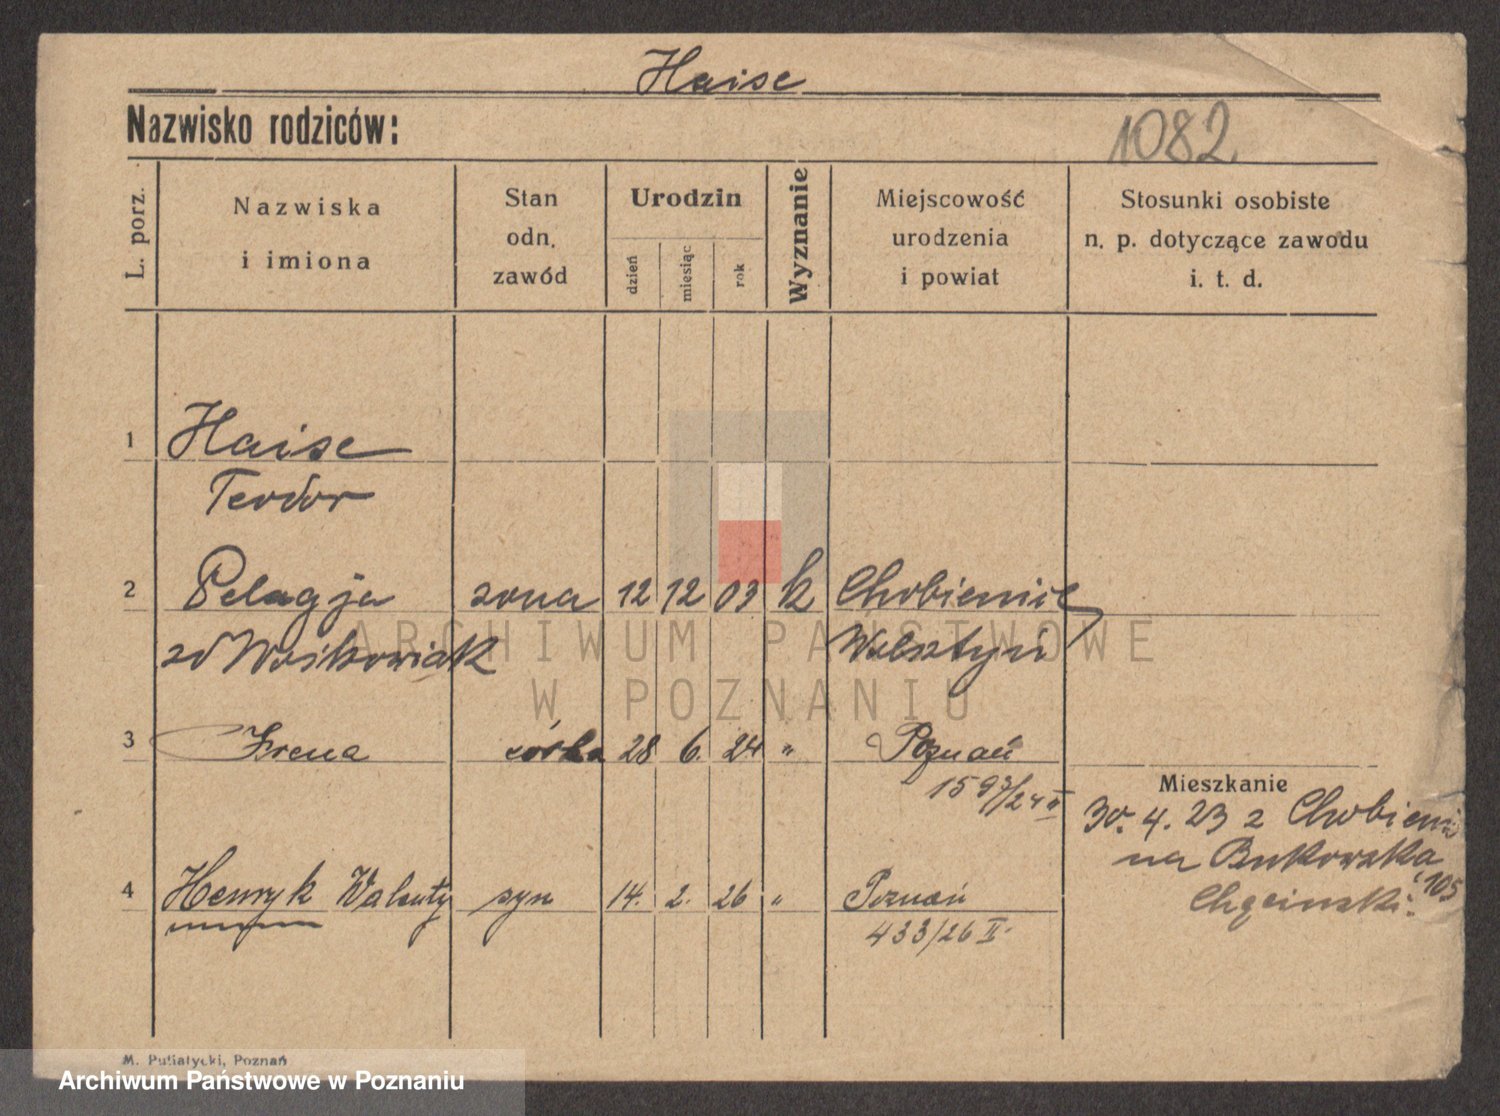 Haise
Nazwisko rodziców:
1082.
L. porz.
Nazwiska
i imiona
Stan
odn.
zawód
Urodzin
dzień
miesiąc
rok
Wyznanie
Miejscowość
urodzenia
i powiat
Stosunki osobiste
n. p. dotyczące zawodu
i. t. d.
1 Haise
Teodor
2 Pelagja żona 12 12 03 k Chobienice
zd Wośkowiak Wolsztyn
3 Irena córka 28 6. 24 " Poznań
1597/24 II
Mieszkanie
30. 4. 23 z Chobieni
na Bukowska
105
4 Henryk Walenty syn 14. 2. 26 " Poznań
433/26 II
ARCHIWUM PAŃSTWOWE
W POZNANIU
M. Putiatycki, Poznań
Archiwum Państwowe w Poznaniu